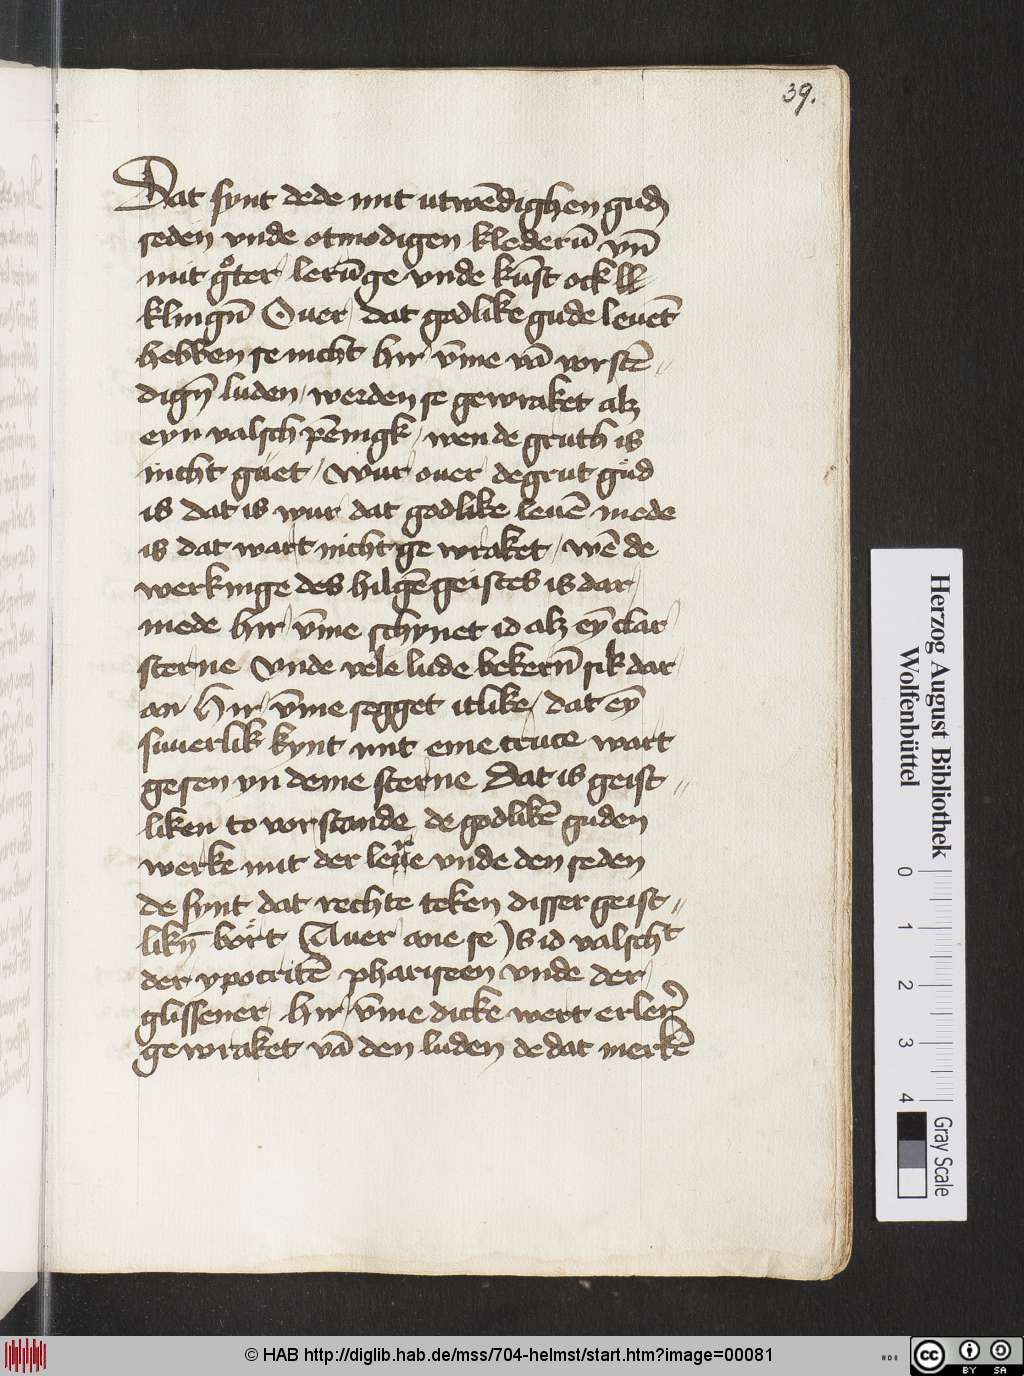 39.
Dat synt dede mit utwēdighen gudn̄
seden vnde otmodigen klederū vn̄
mit gůter lerūge vnde kūst ock
klingn̄ Ouer dat godlike gude leuēt
hebben se nicht hir v̄me vā vorstē-
dign̄ luden / werden se gewraket alz
eyn valsch pēnigk / wen de gruth is
nicht guet / wur ouer de grut gud
is dat is wur dat godlike leuē mede
is dat wart nicht ge wraket / wē de
werkinge des hilgē geistes is dar
mede hir v̄me schynet id alz eȳ clar
sterne vnde vele lude bekern̄ sik dar
an Hir v̄me segget itlike / dat eȳ
suuerlik kynt mit eme cruce wart
gesen yn deme sterne Dat is geist-
liken to vorstande de godlikē guden
werke mit der lere vnde den seden
de synt dat rechte teken disser geist-
likn̄ bort Auer ane se is id valscht
der ypocritē phariseen vnde der
glissener hir v̄me dicke wert er leuent
gewraket vā den luden de dat merkē
Herzog August Bibliothek
Wolfenbüttel
0 1 2 3 4
Gray Scale
© HAB http://diglib.hab.de/mss/704-helmst/start.htm?image=00081
HAB
cc BY SA